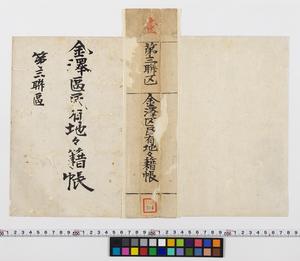 壹
第三聯区
金澤区民有地々籍帳
金澤區民有地々籍帳
第三聯區